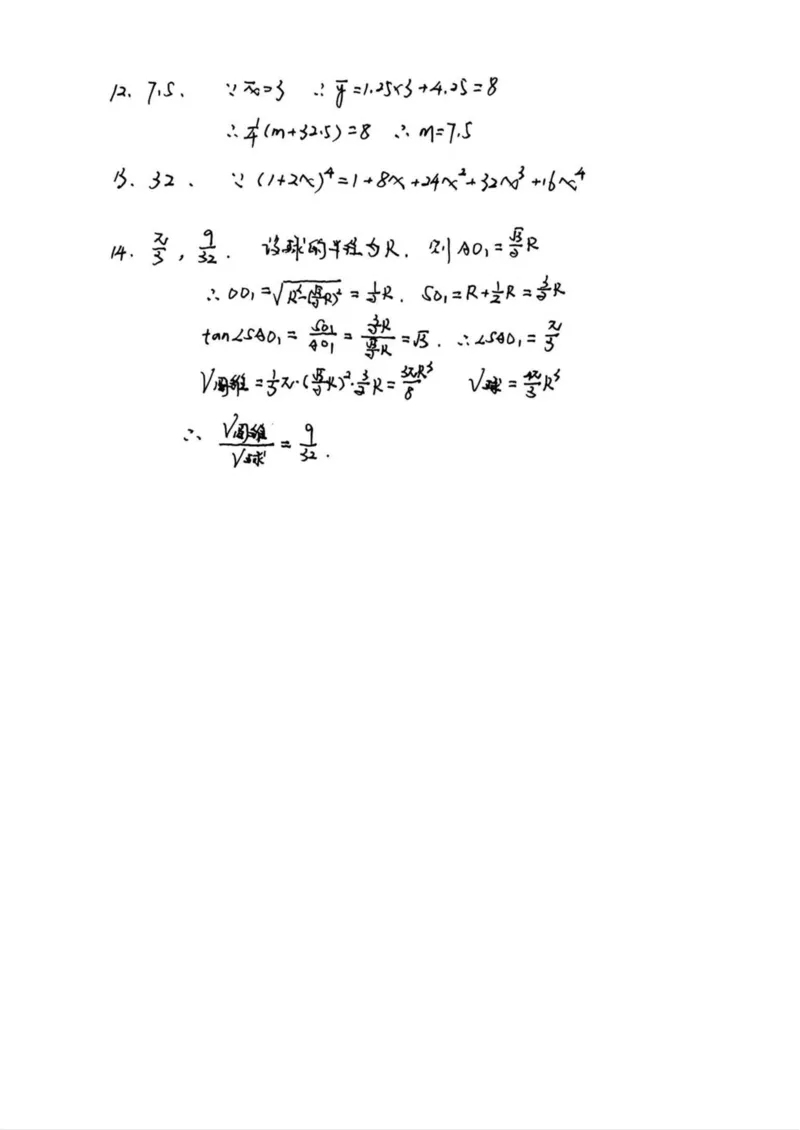 12. 7.5. ∵ x̄=3 ∴ ȳ=1.25×3+4.25=8
∴ 1/4(m+32.5)=8 ∴ m=7.5
13. 32. ∵ (1+2x)⁴=1+8x+24x²+32x³+16x⁴
14. π/3, 9/32. 设球的半径为R. 则AO₁=√3/2R
∴ OO₁=√(R²-(√3/2R)²)=1/2R. SO₁=R+1/2R=3/2R
tan∠SAO₁=SO₁/AO₁=(3/2R)/(√3/2R)=√3. ∴∠SAO₁=π/3
V圆锥=1/3π·(√3/2R)²·3/2R=3πR³/8 V球=4π/3R³
∴ V圆锥/V球=9/32.